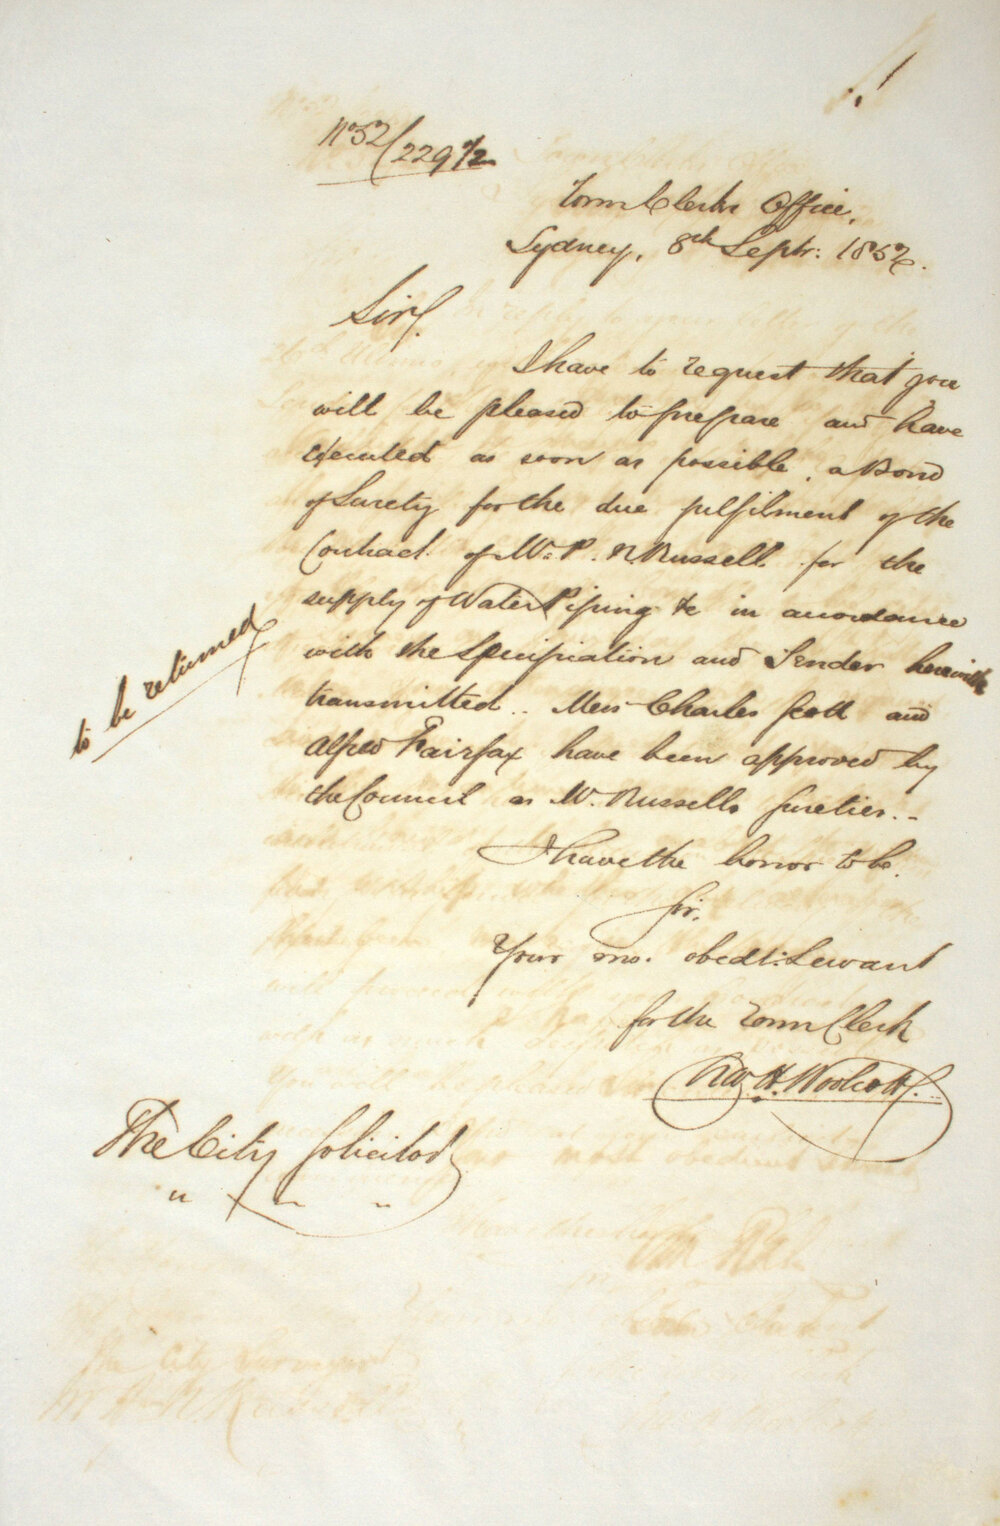 No 52/229 1/2
Town Clerks Office,
Sydney, 8th Septr: 1852.
Sir,
I have to request that you
will be pleased to prepare and have
executed as soon as possible, a Bond
of Surety for the due fulfilment of the
Contract of Mr. P. N. Russell for the
supply of Water Piping &c in accordance
with the Specification and Tender herewith
transmitted.. Mess Charles Scott and
Alfred Fairfax have been approved by
the Council as Mr. Russells sureties.-
to be returned
I have the honor to be.
Sir.
Your mo. obedt: Servant
for the Town Clerk
H. Woolcott.
The City Solicitor
" " "
The City Surveyor